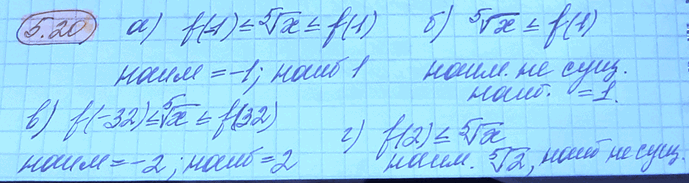 5.20. а) f(-1) ≤ ⁵√x ≤ f(1) б) ⁵√x ≤ f(1)
наим = -1; наиб 1 наим. не сущ.
наиб. = 1.
в) f(-32) ≤ ⁵√x ≤ f(32) г) f(2) ≤ ⁵√x
наим = -2; наиб = 2 наим. ⁵√2, наиб не сущ.